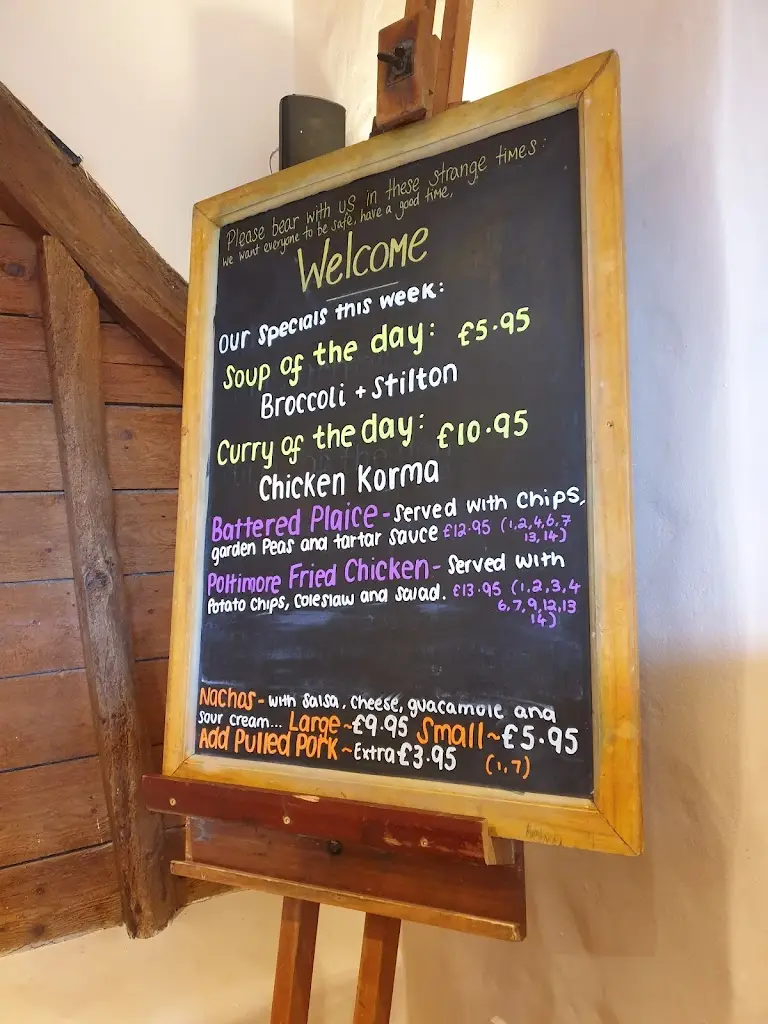 Please bear with us in these strange times:
we want everyone to be safe, have a good time,
Welcome
our specials this week:
Soup of the day: £5.95
Broccoli + Stilton
Curry of the day: £10.95
Chicken Korma
Battered Plaice - Served with chips,
garden Peas and tartar sauce £12.95 (1,2,4,6,7
13,14)
Poltimore Fried Chicken - Served with
Potato chips, coleslaw and salad. £13.95 (1,2,3,4
6,7,9,12,13
14)
Nachos - with salsa, cheese, guacamole and
sour cream... Large ~ £9.95 Small ~ £5.95
Add Pulled Pork ~ Extra £3.95 (1,7)